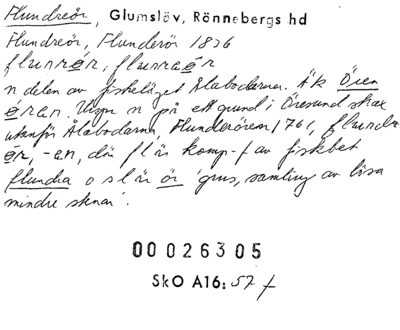 Flundreör, Glumslöv, Rönnebergs hd
Flundreör, Flunderör 1826
n delen av fiskeläget Ålabodarna. Äk Ören
Urspr n på ett grund i Öresund strax
utanför Ålabodarna, Flunderören 1761, flundr
-ən, där fl är komp-f av fiskbet
flundra o s l är ör 'grus, samling av lösa
mindre stenar'.
00026305
SkO A16: 57 f